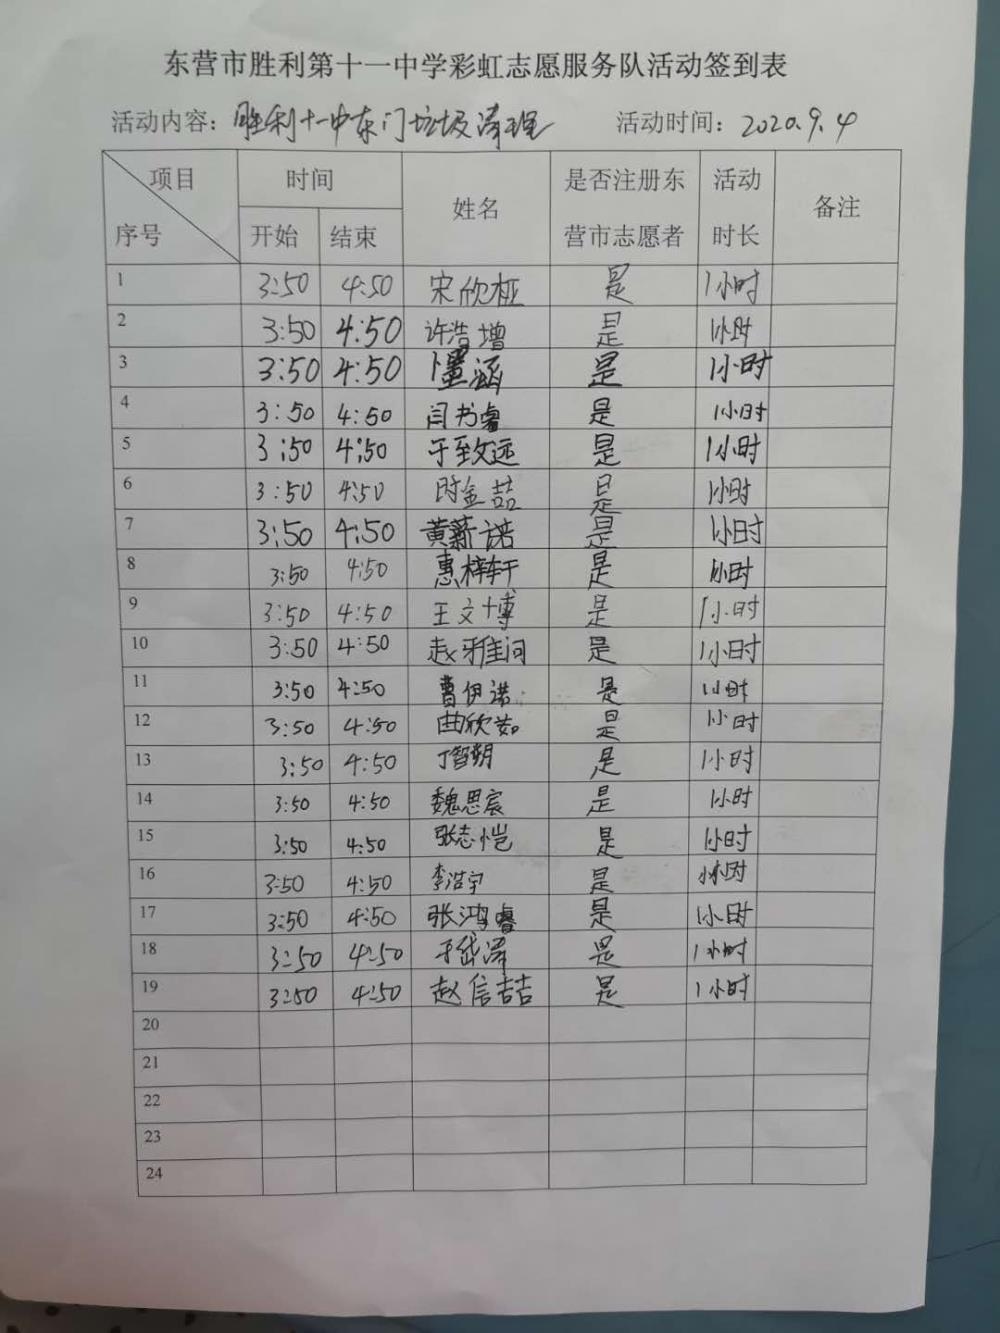 东营市胜利第十一中学彩虹志愿服务队活动签到表
活动内容：胜利十一中东门垃圾清理 活动时间：2020.9.4
项目 时间 姓名 是否注册东 活动 备注
序号 开始 结束 营市志愿者 时长
1 3:50 4:50 宋欣桠 是 1小时
2 3:50 4:50 许浩增 是 1小时
3 3:50 4:50 涵 是 1小时
4 3:50 4:50 闫书睿 是 1小时
5 3:50 4:50 于致远 是 1小时
6 3:50 4:50 时金喆 是 1小时
7 3:50 4:50 黄薪诺 是 1小时
8 3:50 4:50 惠梓轩 是 1小时
9 3:50 4:50 王文博 是 1小时
10 3:50 4:50 赵雅问 是 1小时
11 3:50 4:50 曹伊诺 是 1小时
12 3:50 4:50 曲欣茹 是 1小时
13 3:50 4:50 丁智朔 是 1小时
14 3:50 4:50 魏思宸 是 1小时
15 3:50 4:50 张志恺 是 1小时
16 3:50 4:50 李浩宇 是 小时
17 3:50 4:50 张鸿睿 是 1小时
18 3:50 4:50 于岱泽 是 1小时
19 3:50 4:50 赵信喆 是 1小时
20
21
22
23
24